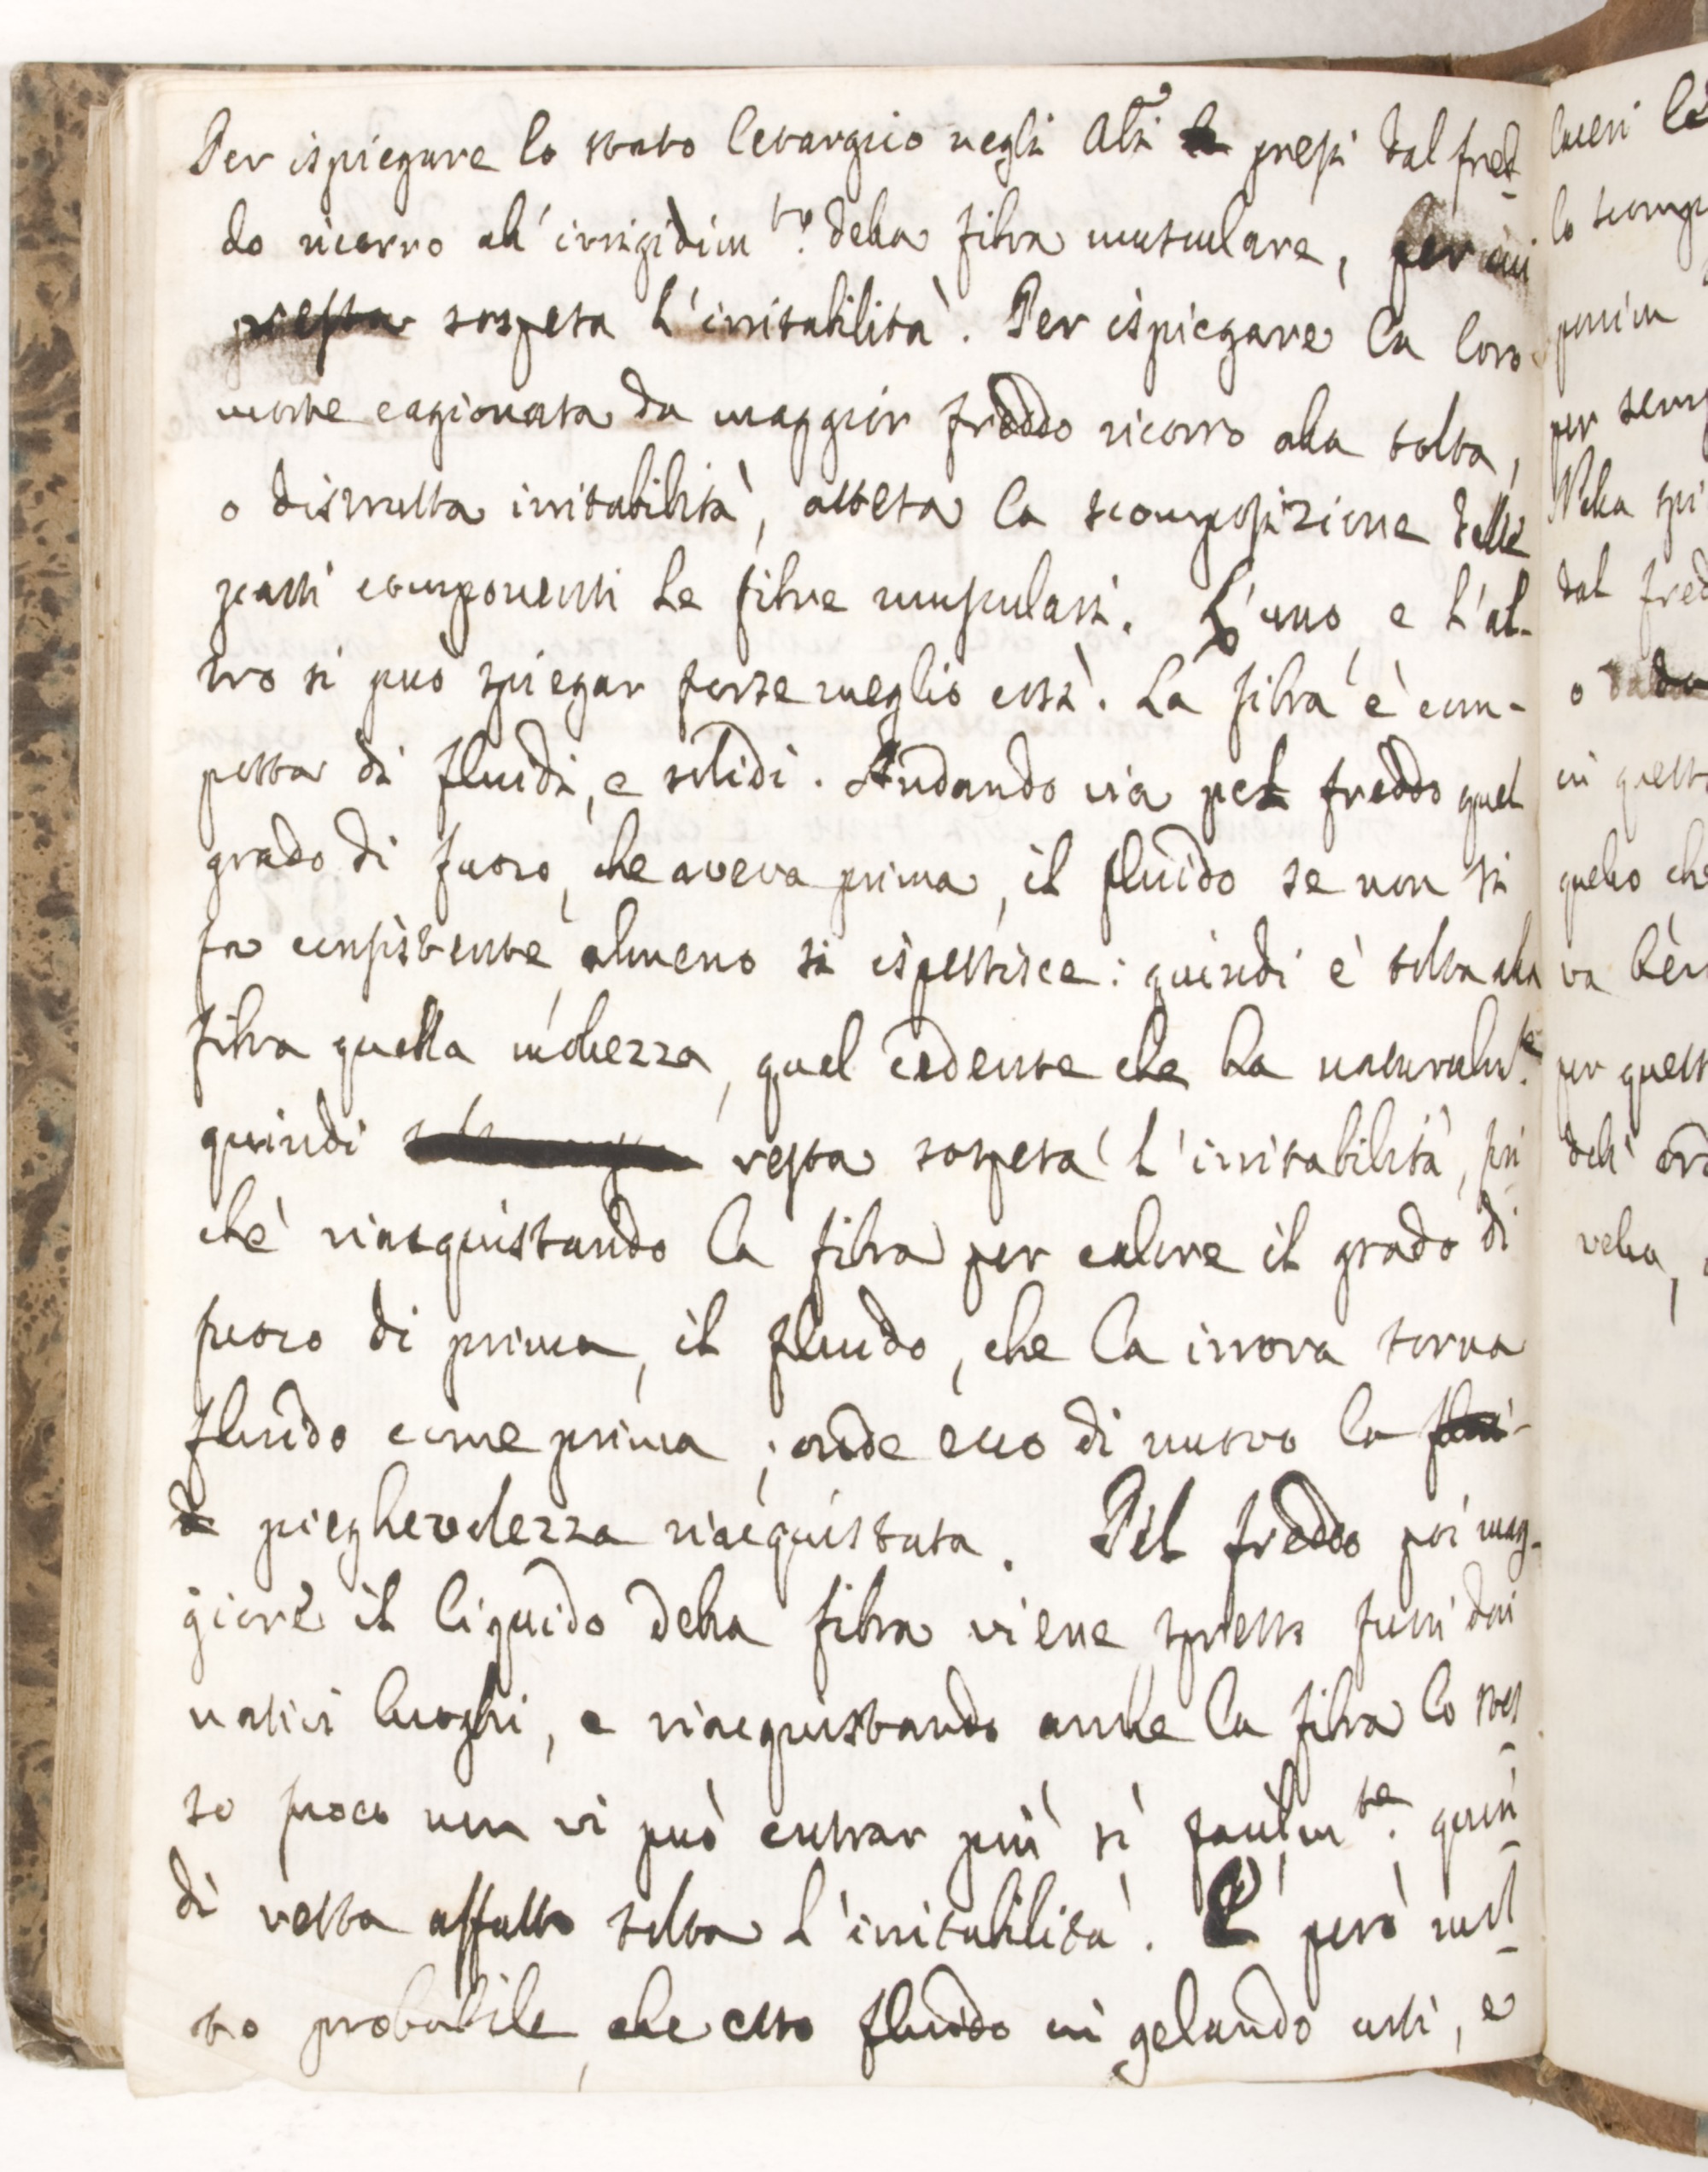 Per ispiegare lo stato letargico negli Ali presi dal fred-
do ricorro all'irrigidimto. della fibra musculare, per cui
resta sospesa l'irritabilità. Per ispiegare la loro
morte cagionata da maggior freddo ricorro alla tolta,
o distrutta irritabilità, attesa la scomposizione delle
parti componenti le fibre muscolari. L'uno, e l'al-
tro si può spiegar forse meglio così. La fibra è com-
posta di fluidi, e solidi. Andando via pel freddo quel
grado di fuoco, che aveva prima, il fluido se non si
fa consistente, almeno si ispessisce: quindi è tolta alla
fibra quella mollezza, quel cedente che ha naturalmte.
quindi resta sospesa l'irritabilità, poi
chè riacquistando la fibra per calore il grado di
fuoco di prima, il fluido, che la irrora torna
fluido come prima; onde ecco di nuovo la flui-
da pieghevolezza riacquistata. Pel freddo poi mag-
giore il liquido della fibra viene spresso fuori dai
nativi luoghi, e riacquistando anche la fibra lo stes-
so fuoco non vi può entrar più sì facilmte. quin-
di resta affatto tolta l'irritabilità. È però mol-
to probabile, che esso fluido in gelando urti, e
lo scomp
per semp
Nella spi
dal fred
o da
in quest
quello che
va
per quest
dell'
vella,